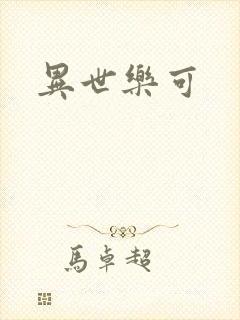 異世樂可
馬卓超